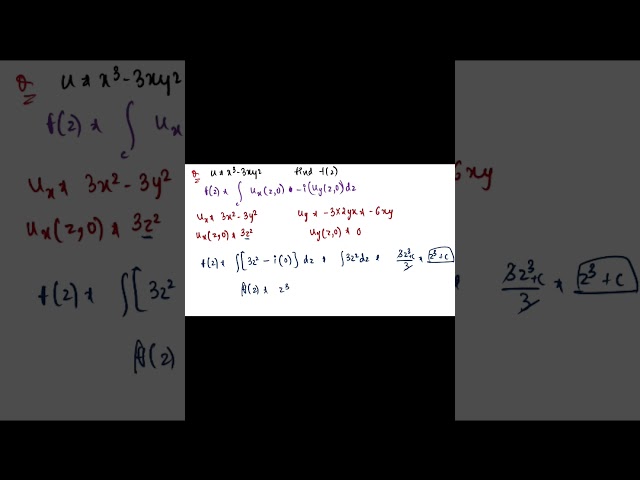 Q u = x³ - 3xy² find f(z)
f(z) = ∫c ux(z,0) - i(uy(z,0)) dz
ux = 3x² - 3y² uy = -3×2yx = -6xy
ux(z,0) = 3z² uy(z,0) = 0
f(z) = ∫[3z² - i(0)] dz = ∫3z² dz = 3z³/3 + c = z³ + c
f(z) = z³